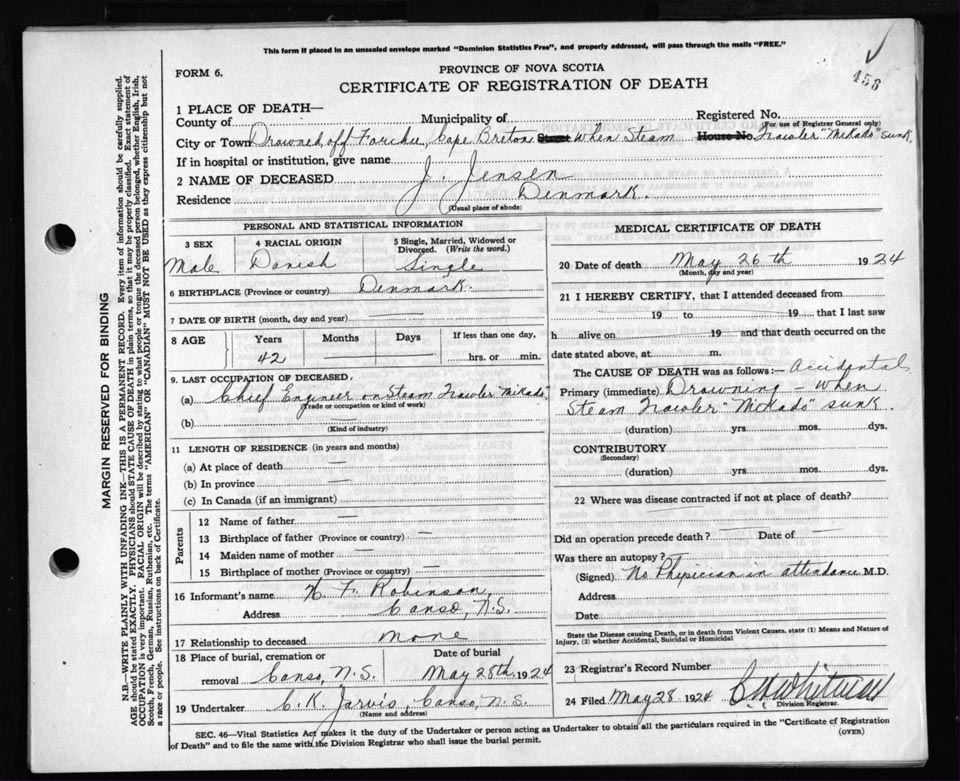 This form if placed in an unsealed envelope marked "Dominion Statistics Free", and properly addressed, will pass through the mails "FREE."
458
FORM 6.
PROVINCE OF NOVA SCOTIA
CERTIFICATE OF REGISTRATION OF DEATH
1 PLACE OF DEATH—
County of
Municipality of
Registered No.
(For use of Registrar General only)
City or Town Drowned off Fourchu, Cape Breton Street When Steam House No. Trawler "Mikado" sunk.
If in hospital or institution, give name
2 NAME OF DECEASED J. Jensen
Residence Denmark.
(Usual place of abode)
PERSONAL AND STATISTICAL INFORMATION
3 SEX
Male
4 RACIAL ORIGIN
Danish
5 Single, Married, Widowed or Divorced. (Write the word.)
Single
6 BIRTHPLACE (Province or country) Denmark.
7 DATE OF BIRTH (month, day and year) —
8 AGE
Years
42
Months
—
Days
—
If less than one day,
hrs. or min.
9. LAST OCCUPATION OF DECEASED,
(a) Chief Engineer on Steam Trawler "Mikado".
(Trade or occupation or kind of work)
(b)
(Kind of industry)
11 LENGTH OF RESIDENCE (in years and months)
(a) At place of death —
(b) In province —
(c) In Canada (if an immigrant) —
Parents
12 Name of father —
13 Birthplace of father (Province or country) —
14 Maiden name of mother —
15 Birthplace of mother (Province or country) —
16 Informant's name H. F. Robinson,
Address Canso, N.S.
17 Relationship to deceased None
18 Place of burial, cremation or removal Canso, N.S.
Date of burial
May 28th, 1924
19 Undertaker C. K. Jarvis, Canso, N.S.
(Name and address)
MEDICAL CERTIFICATE OF DEATH
20 Date of death May 26th 1924
(Month, day and year)
21 I HEREBY CERTIFY, that I attended deceased from
19 to 19 that I last saw
h alive on 19 and that death occurred on the
date stated above, at m.
The CAUSE OF DEATH was as follows:— Accidental
Primary (immediate) Drowning — When
Steam Trawler "Mikado" sunk.
(duration) yrs. mos. dys.
CONTRIBUTORY
(Secondary)
(duration) yrs. mos. dys.
22 Where was disease contracted if not at place of death?
Did an operation precede death? — Date of —
Was there an autopsy? —
(Signed) No Physician in attendance M.D.
Address
Date
State the Disease causing Death, or in death from Violent Causes, state (1) Means and Nature of
Injury, (2) whether Accidental, Suicidal or Homicidal
23 Registrar's Record Number
24 Filed May 28 1924
Division Registrar.
SEC. 46—Vital Statistics Act makes it the duty of the Undertaker or person acting as Undertaker to obtain all the particulars required in the "Certificate of Registration
of Death" and to file the same with the Division Registrar who shall issue the burial permit.
(OVER)
MARGIN RESERVED FOR BINDING
N.B.—WRITE PLAINLY WITH UNFADING INK—THIS IS A PERMANENT RECORD. Every item of information should be carefully supplied.
AGE should be stated EXACTLY. PHYSICIANS should STATE CAUSE OF DEATH in plain terms, so that it may be properly classified. Exact statement of
OCCUPATION is very important. RACIAL ORIGIN will be described by stating to what people or tongue the deceased person belonged, whether English, Irish,
Scotch, French, German, Russian, Ruthenian, etc. The terms "AMERICAN" OR "CANADIAN" MUST NOT BE USED as they express citizenship but not
a race or people. See instructions on back of Certificate.